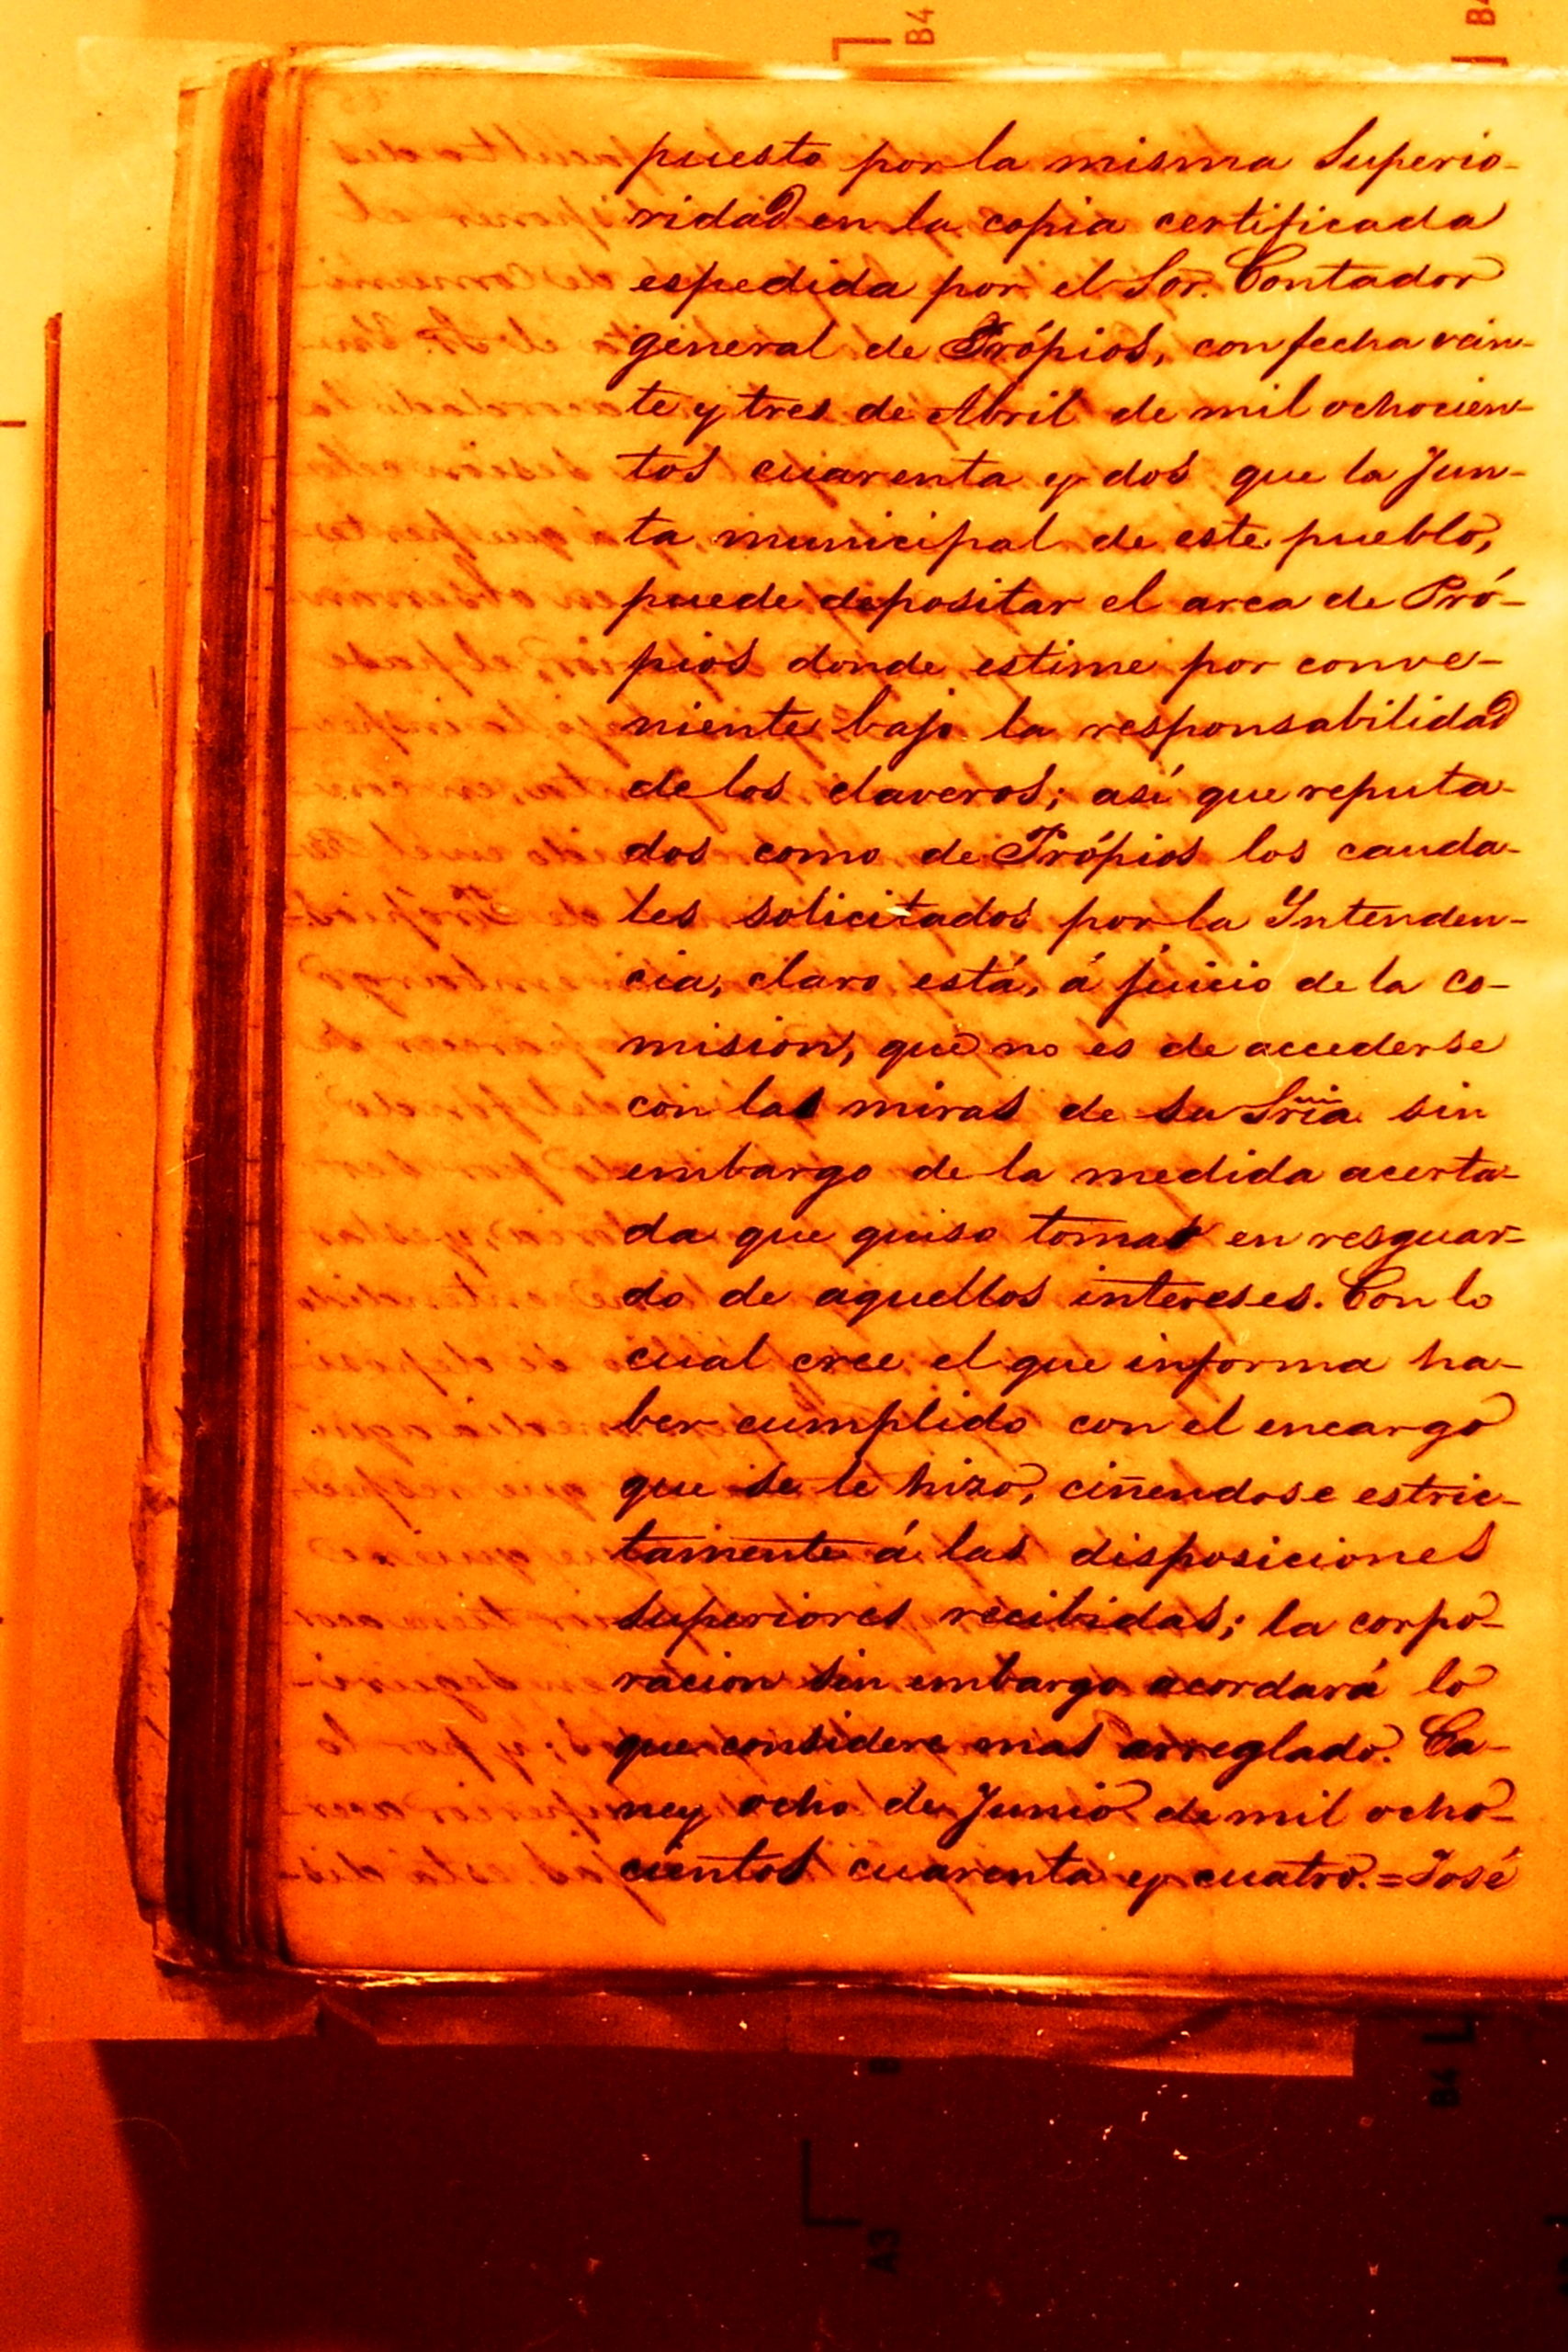 puesto por la misma Superio-
ridad en la copia certificada
espedida por el Sor. Contador
general de Própios, con fecha vein-
te y tres de Abril de mil ochocien-
tos cuarenta y dos que la Jun-
ta municipal de este pueblo,
puede depositar el arca de Pró-
pios donde estime por conve-
niente bajo la responsabilidad
de los claveros; así que reputa-
dos como de Própios los cauda-
les solicitados por la Yntenden-
cia, claro está, á juicio de la co-
mision, que no es de accederse
con las miras de su Sria sin
embargo de la medida acerta-
da que quiso tomar en resguar-
do de aquellos intereses. Con lo
cual cree el que informa ha-
ber cumplido con el encargo
que se le hizo, ciñendose estric-
tamente á las disposiciones
superiores recibidas; la corpo-
racion sin embargo acordará lo
que considere mas arreglado. Ca-
ney ocho de Junio de mil ocho-
cientos cuarenta y cuatro.=José
B4
B4
B4
A3